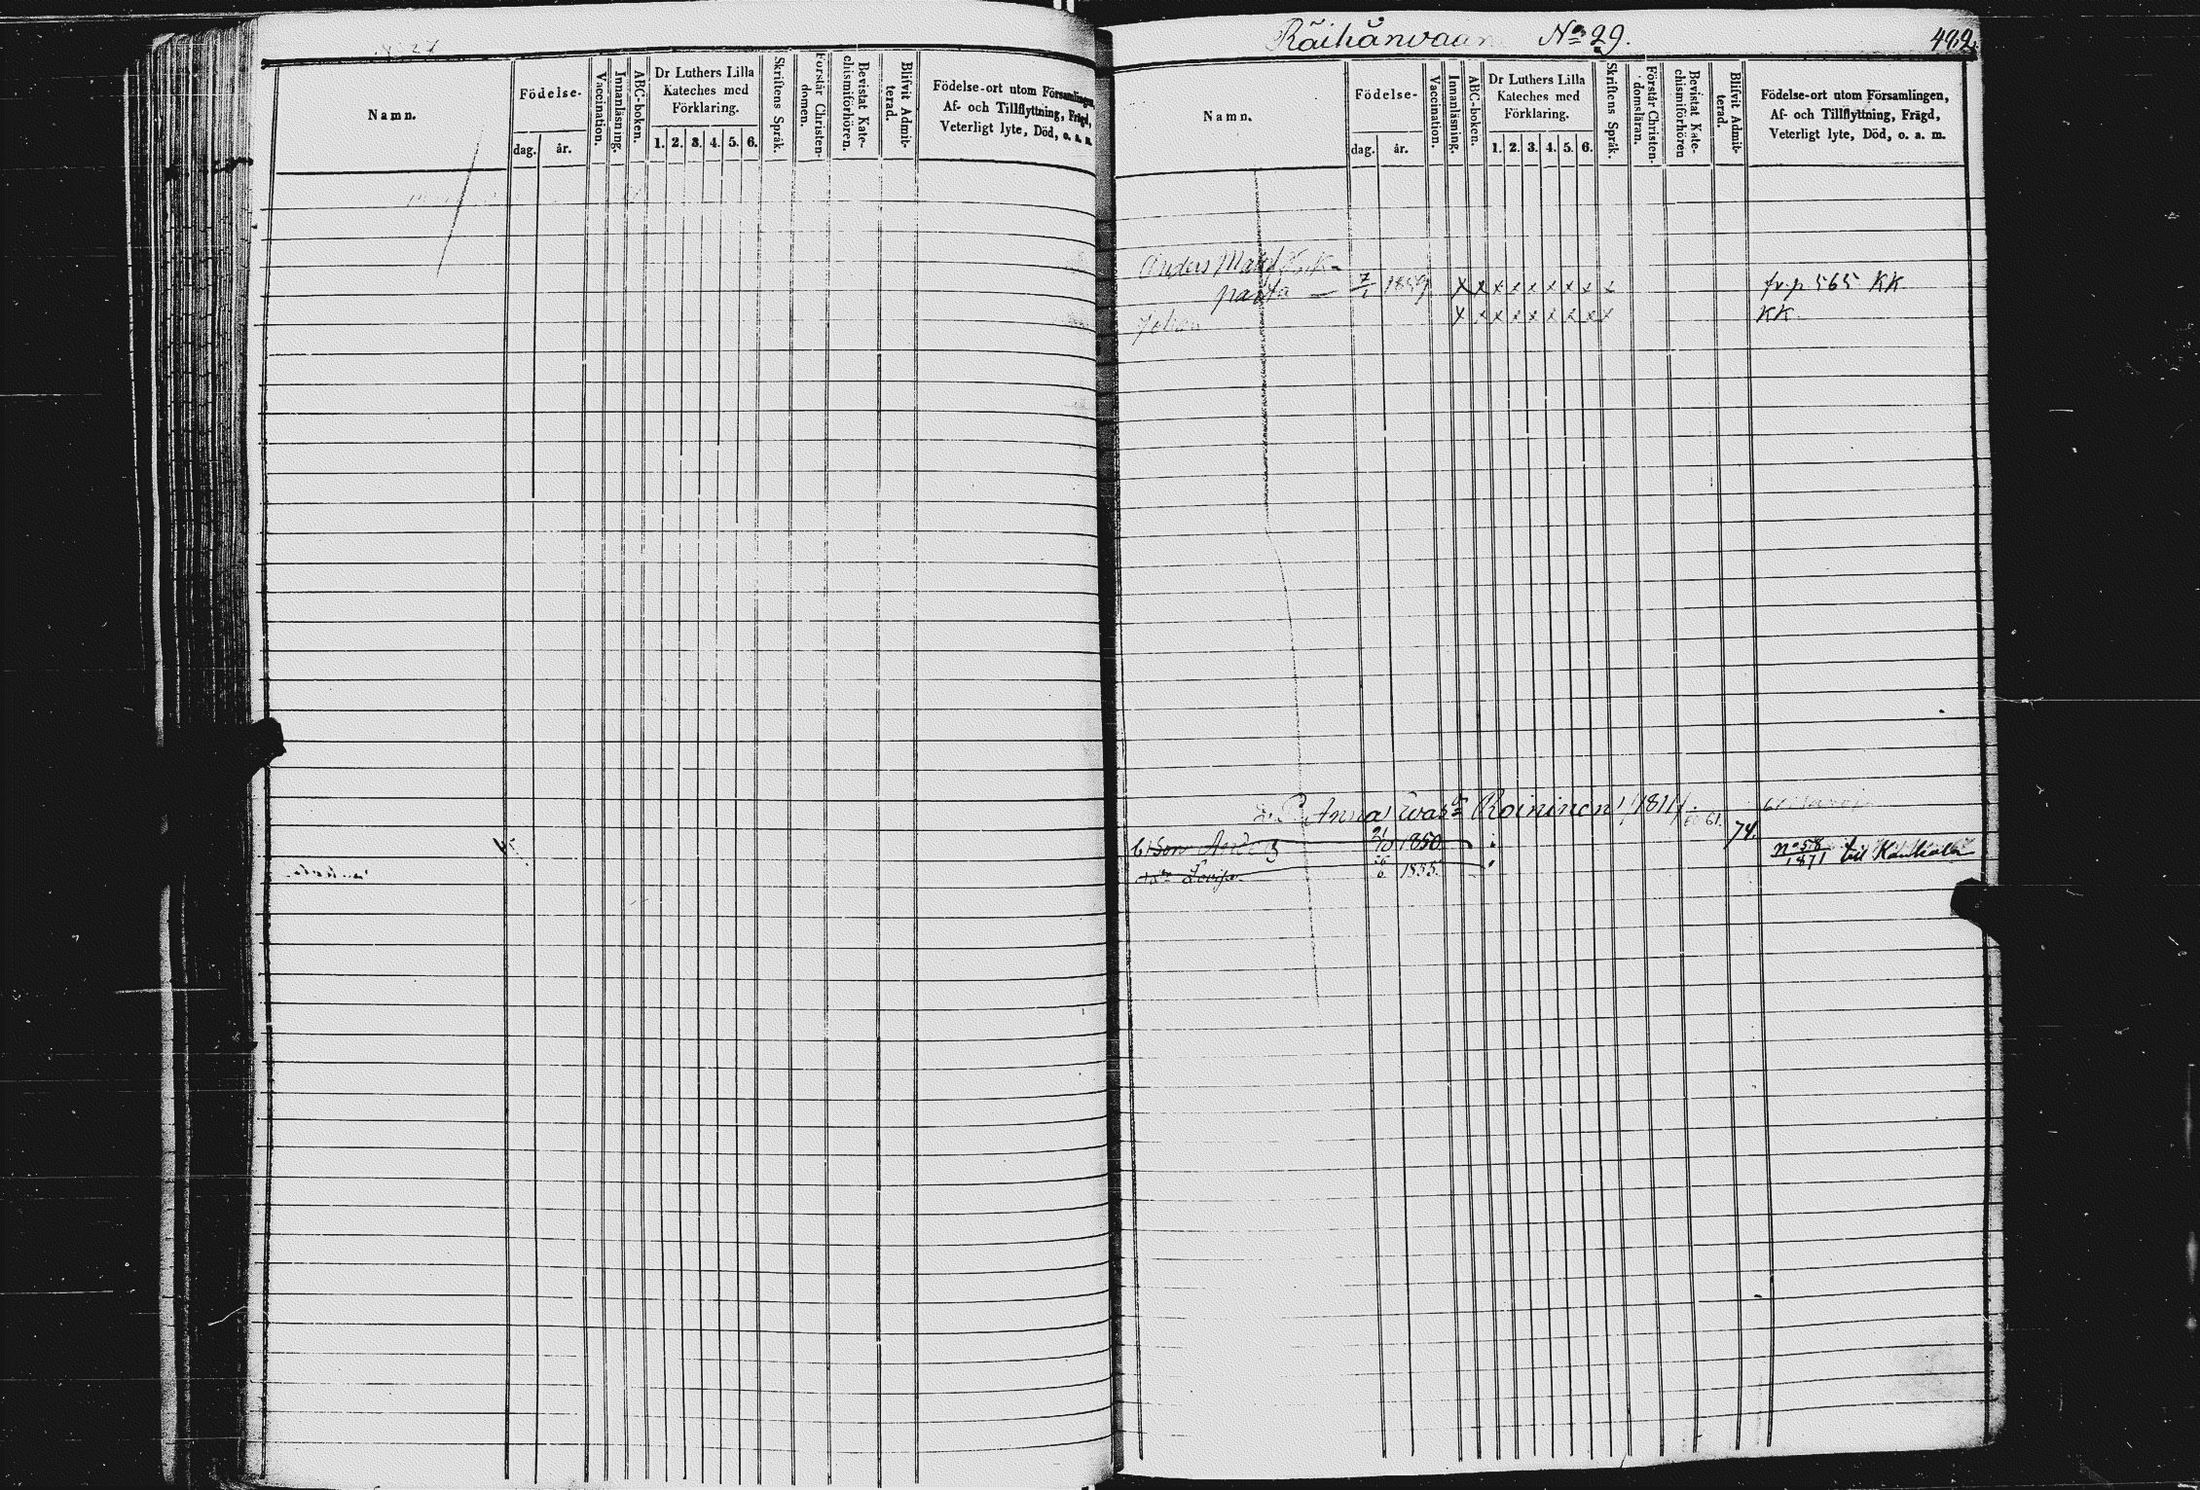 Namn.
Födelse-
dag.
år.
Vaccination.
Innanläsning.
ABC-boken.
Dr Luthers Lilla
Kateches med
Förklaring.
1. 2. 3. 4. 5. 6.
Skriftens Språk.
Förstår Christen-
domen.
Bevistat Kate-
chismiförhören.
Blifvit Admit-
terad.
Födelse-ort utom Församlingen,
Af- och Tillflyttning, Frägd,
Veterligt lyte, Död, o. a. m.
Räihänvaara No 29.
Namn.
Födelse-
dag.
år.
Vaccination.
Innanläsning.
ABC-boken.
Dr Luthers Lilla
Kateches med
Förklaring.
1. 2. 3. 4. 5. 6.
Skriftens Språk.
Förstår Christen-
domsläran.
Bevistat Kate-
chismiförhören
Blifvit Admit-
terad.
Födelse-ort utom Församlingen,
Af- och Tillflyttning, Frägd,
Veterligt lyte, Död, o. a. m.
Anders
x x x x x x x x x fr. p 565 KK
Johan x x x x x x x x x KK
Anna Roininen 1811 61. 74.
Son 21/10 1850. no 58/1871 till
Lovisa 6 1855.